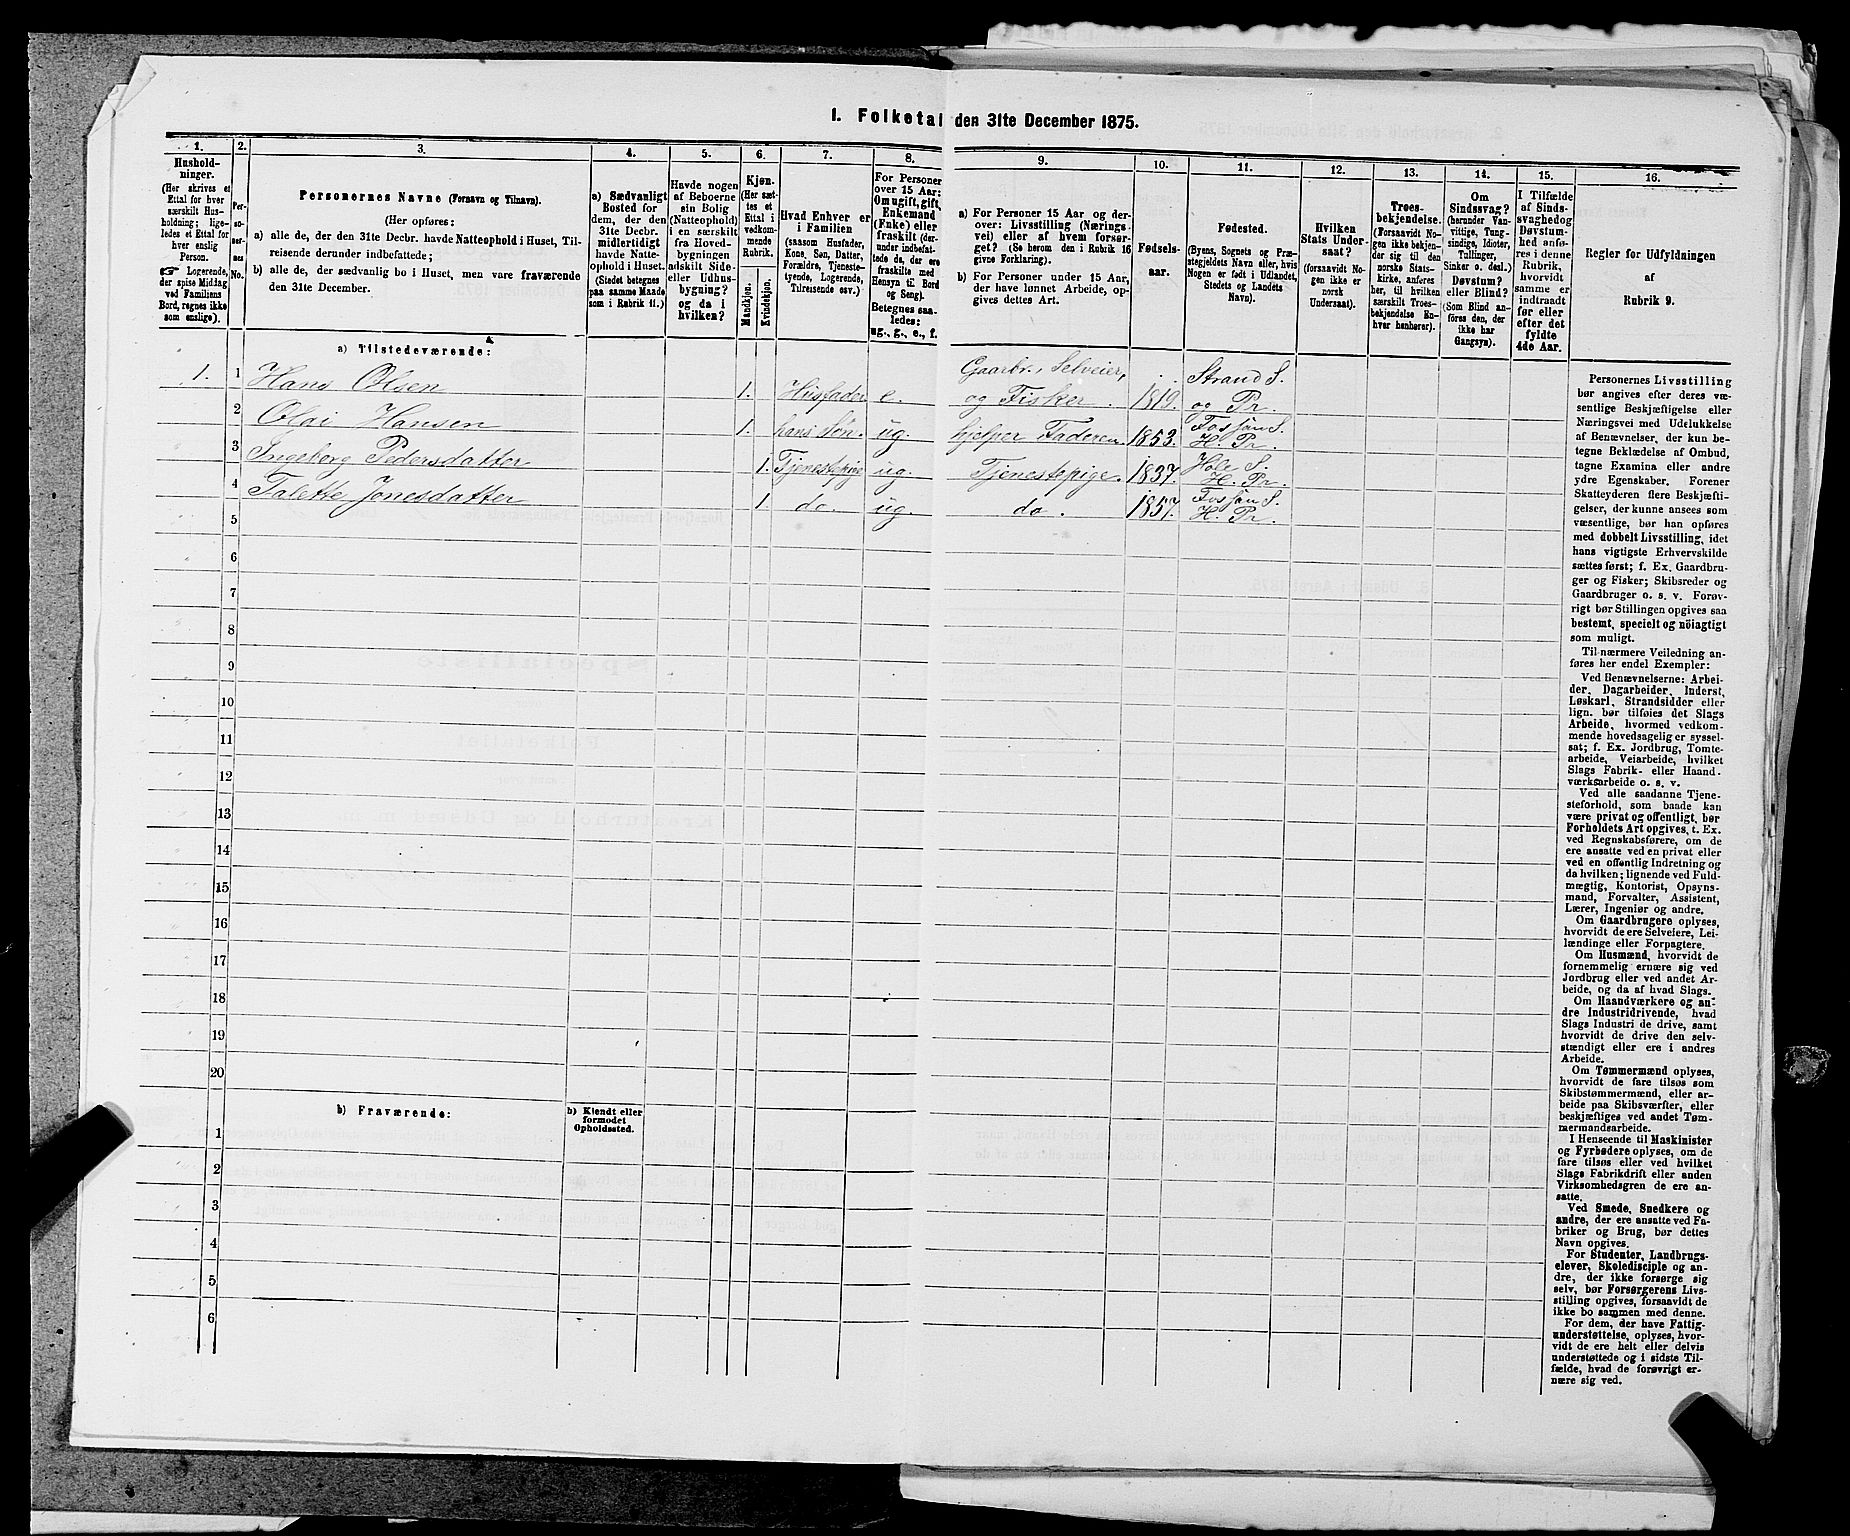 1. Folketal den 31te December 1875.
1.
2.
3.
4.
5.
6.
7.
8.
9.
10.
11.
12.
13.
14.
15.
16.
Hushold-
ninger.
(Her skrives et
Ettal for hver
særskilt Hus-
holdning; lige-
ledes et Ettal for
hver enslig
Person.
☞ Logerende,
der spise Middag
ved Familiens
Bord, regnes ikke
som enslige).
Per-
so-
ner-
nes
No.
Personernes Navne (Fornavn og Tilnavn).
(Her opføres:
a) alle de, der den 31te Decbr. havde Natteophold i Huset, Til-
reisende derunder indbefattede;
b) alle de, der sædvanlig bo i Huset, men vare fraværende
den 31te December.
a) Sædvanligt
Bosted for
dem, der den
31te Decbr.
midlertidigt
havde Natte-
ophold i Huset.
(Stedet betegnes
paa samme Maade
som i Rubrik 11.)
Havde nogen
af Beboerne
sin Bolig
(Natteophold)
i en særskilt
fra Hoved-
bygningen
adskilt Side-
eller Udhus-
bygning?
og da i
hvilken?
Kjøn.
(Her sæt-
tes et
Ettal i
vedkom-
mende
Rubrik.
Mandkjøn.
Kvindekjøn.
Hvad Enhver er
i Familien
(saasom Husfader,
Kone, Søn, Datter,
Forældre, Tjeneste-
tyende, Logerende,
Tilreisende osv.)
For Personer
over 15 Aar:
Om ugift, gift,
Enkemand
(Enke) eller
fraskilt (der-
under indbefat-
tede de, der ere
fraskilte med
Hensyn til Bord
og Seng).
Betegnes saa-
ledes:
ug., g., e., f.
a) For Personer 15 Aar og der-
over: Livsstilling (Nærings-
vei) eller af hvem forsør-
get? (Se herom den i Rubrik 16
givne Forklaring).
b) For Personer under 15 Aar,
der have lønnet Arbeide, op-
gives dettes Art.
Fødsels-
aar.
Fødested.
(Byens, Sognets og Præ-
stegjeldets Navn eller, hvis
Nogen er født i Udlandet,
Stedets og Landets
Navn).
Hvilken
Stats Under-
saat?
(forsaavidt No-
gen ikke er
norsk
Undersaat).
Troes-
bekjendelse.
(Forsaavidt No-
gen ikke bekjen-
der sig til den
norske Stats-
kirke, anføres
her, til hvilken
særskilt Troes-
bekjendelse En-
hver henhører).
Om
Sindssvag?
(herunder Van-
vittige, Tung-
sindige, Idioter,
Tullinger,
Sinker o. desl.)
Døvstum?
eller Blind?
(Som Blind an-
føres den, der
ikke har
Gangsyn).
I Tilfælde
af Sinds-
svaghed og
Døvstum-
hed anfø-
res i denne
Rubrik,
hvorvidt
samme er
indtraadt
før eller
efter det
fyldte
4de Aar.
Regler for Udfyldningen
af
Rubrik 9.
a) Tilstedeværende:
1. 1 Hans Olsen 1. Husfader e. Gaarbr., Selveier, og Fisker. 1819. Strand S. og Pr.
2 Olai Hansen 1. hans Søn. ug. hjelper Faderen 1853. Fossan S. H. Pr.
3 Ingeborg Pedersdatter 1. Tjenestepige ug. Tjenestepige. 1837. Høle S. H. Pr.
4 Talette Jonesdatter 1. do. ug. do. 1857. Fossan S. H. Pr.
5
6
7
8
9
10
11
12
13
14
15
16
17
18
19
20
b) Fraværende:
b) Kjendt eller
formodet
Opholdssted.
1
2
3
4
5
6
Personernes Livsstilling
bør angives efter deres væ-
sentlige Beskjæftigelse eller
Næringsvei med Udelukkelse
af Benævnelser, der kun be-
tegne Beklædelse af Ombud,
tagne Examina eller andre
ydre Egenskaber. Forener
Skatteyderen flere Beskjæfti-
gelser, der kunne ansees som
væsentlige, bør han opføres
med dobbelt Livsstilling, idet
hans vigtigste Erhvervskilde
sættes først; f. Ex. Gaardbru-
ger og Fisker; Skibsreder og
Gaardbruger o. s. v. Forøv-
rigt bør Stillingen opgives saa
bestemt, specielt og nöiagtigt
som muligt.
Til nærmere Veiledning an-
føres her endel Exempler:
Ved Benævnelserne: Arbei-
der, Dagarbeider, Inderst,
Løskarl, Strandsidder eller
lign. bør tilføies det Slags
Arbeide, hvormed vedkom-
mende hovedsagelig er syssel-
sat; f. Ex. Jordbrug, Tomte-
arbeide, Veiarbeide, hvilket
Slags Fabrik- eller Haand-
værksarbeide o. s. v.
Ved alle saadanne Tjene-
steforhold, som baade kan
være privat og offentligt, bør
Forholdets Art opgives, t. Ex.
ved Regnskabsførere, om de
ere ansatte ved en privat eller
ved en offentlig Indretning og
da hvilken; lignende ved Fuld-
mægtig, Kontorist, Opsyns-
mand, Forvalter, Assistent,
Lærer, Ingeniør og andre.
Om Gaardbrugere oplyses,
hvorvidt de ere Selveiere, Lei-
lændinge eller Forpagtere.
Om Husmænd, hvorvidt de
fornemmelig ernære sig ved
Jordbrug eller ved andet Ar-
beide, og da af hvad Slags.
Om Haandværkere og an-
dre Industridrivende, hvad
Slags Industri de drive, samt
hvorvidt de drive den selv-
stændigt eller ere i andres
Arbeide.
Om Tømmermænd oplyses,
hvorvidt de fare tilsøs som
Skibstømmermænd, eller ar-
beide paa Skibsværfter, eller
beskjæftiges ved andet Tøm-
mermandsarbeide.
I Henseende til Maskinister
og Fyrbødere oplyses, om de
fare tilsøs eller ved hvilket
Slags Fabrikdrift eller anden
Virksomhedsgren de ere an-
satte.
Ved Smede, Snedkere og
andre, der ere ansatte ved Fa-
briker og Brug, bør dettes
Navn opgives.
For Studenter, Landbrugs-
elever, Skoledisciple og an-
dre, der ikke forsørge sig
selv, bør Forsørgerens Livs-
stilling opgives, forsaavidt de
ikke bo sammen med denne.
For dem, der have Fattig-
understøttelse, oplyses, hvor-
vidt de ere helt eller delvis
understøttede og i sidste Til-
fælde, hvad de forøvrigt er-
nære sig ved.